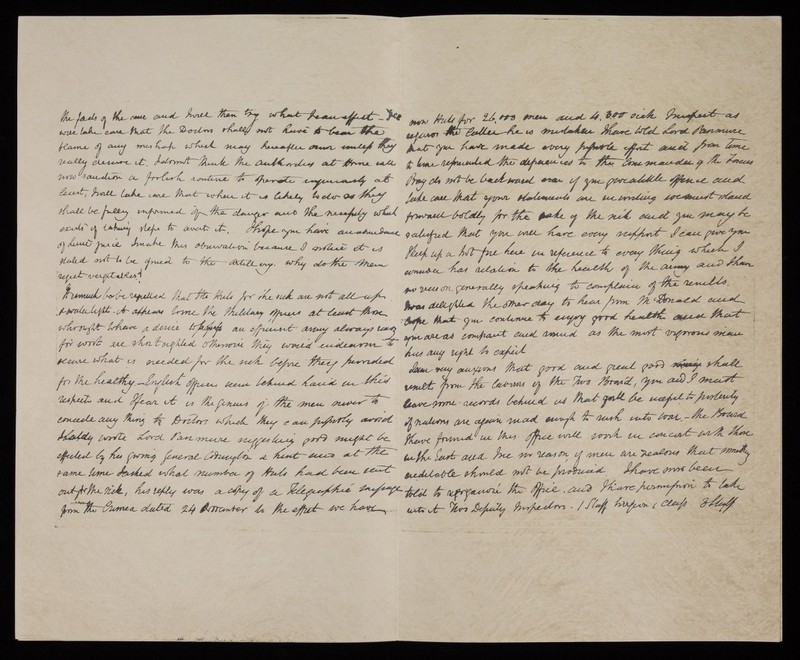 the facts of the case and I will then try what I can effect - I
will take care that the Doctors shall not have to bear the
blame of any mishap which may hereafter occur unless they
really deserve it. I do not think the Authorities at Home will
now sanction a foolish routine to operate injuriously at
least, I will take care that when it is likely to do so they
shall be fully informed of the danger and the necessity what
of taking steps to avert it. I hope you have an abundance
of lime juice I make this observation because I notice it is
stated not to be issued to the Artillery. Why do the men
reject vegetables?
It is much to be regretted that the Huts for the sick are not all up
& made tight. It appears to me the Military officers at least those
who ought to have a desire to have an efficient army always ready
for work are short sighted otherwise they would endeavour to
secure what is needed for the sick before they provided
for the healthy - English Officers seem behind hand in this
respect and I fear it is the genius of the men never to
concede any thing to Doctors which they can possibly avoid
I lately wrote Lord Panmure suggesting good might be
effected by his giving General Codrington a hint and at the
same time I asked what number of Huts had been sent
out for the sick, his reply was a copy of a Telegraphic message
from the Crimea dated 24 November to the effect we have
now Huts for 26,000 men and 4,300 sick Inspect as
regards the latter he is mistaken I have told Lord Panmure
that you have made every possible effort and from time
to time represented the deficiencies to the Commander of the Forces
Pray do not be backward even if you give a little offence and
take care that your statements are in writing we must stand
forward boldly for the sake of the sick and you may be
satisfied that you will have every support I can give you
I keep up a hot fire here in reference to every thing which I
consider has relation to the health of the army and I have
no reason generally speaking to complain of the results.
I was delighted the other day to hear from McDonald and
I hope that you continue to enjoy good health and that
you are as compact and sound as the most vigorous man
has any right to expect
I am very anxious that good and great good shall
result from the labours of the Two Boards, you and I must
leave some records behind us that will be useful to posterity
if nations are again mad enough to rush into war. - The Board
I have formed in this office will work in concert with those
in the East and I see no reason if men are zealous that something
creditable should not be produced I have now been
told to reorganise the Office, and I have permission to take
into it Two Deputy Inspectors - 1 Staff Surgeon 1 Class